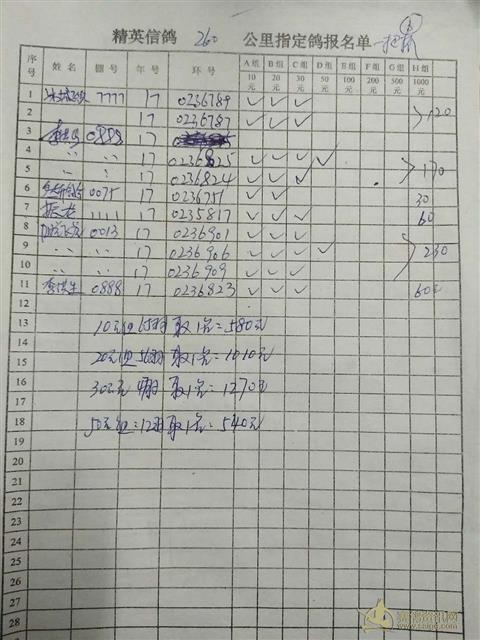 精英信鸽 260 公里指定鸽报名单
序号 姓名 棚号 年号 环号 A组 B组 C组 D组 E组 F组 G组 H组
10元 20元 30元 50元 100元 200元 500元 1000元
1 7777 17 0236789 ✓ ✓ ✓
2 17 0236787 ✓ ✓ ✓ >120
3 0888 17
4 〃 〃 17 0236825 ✓ ✓ ✓ ✓
5 17 0236824 ✓ ✓ ✓ >170
6 0075 17 0236751 ✓ ✓ 30
7 1111 17 0235817 ✓ ✓ ✓ 60
8 0013 17 0236901 ✓ ✓ ✓
9 〃 〃 17 0236906 ✓ ✓ ✓ ✓ >230
10 〃 〃 17 0236909 ✓ ✓ ✓
11 0888 17 0236823 ✓ ✓ ✓ 60元
12
13 10元组 取1名=580元
14
15 20元组 56羽 取1名=1010元
16 30元 取1名=1270元
17
18 50元组=12羽 取1名=540元
19
20
21
22
23
24
25
26
27
28